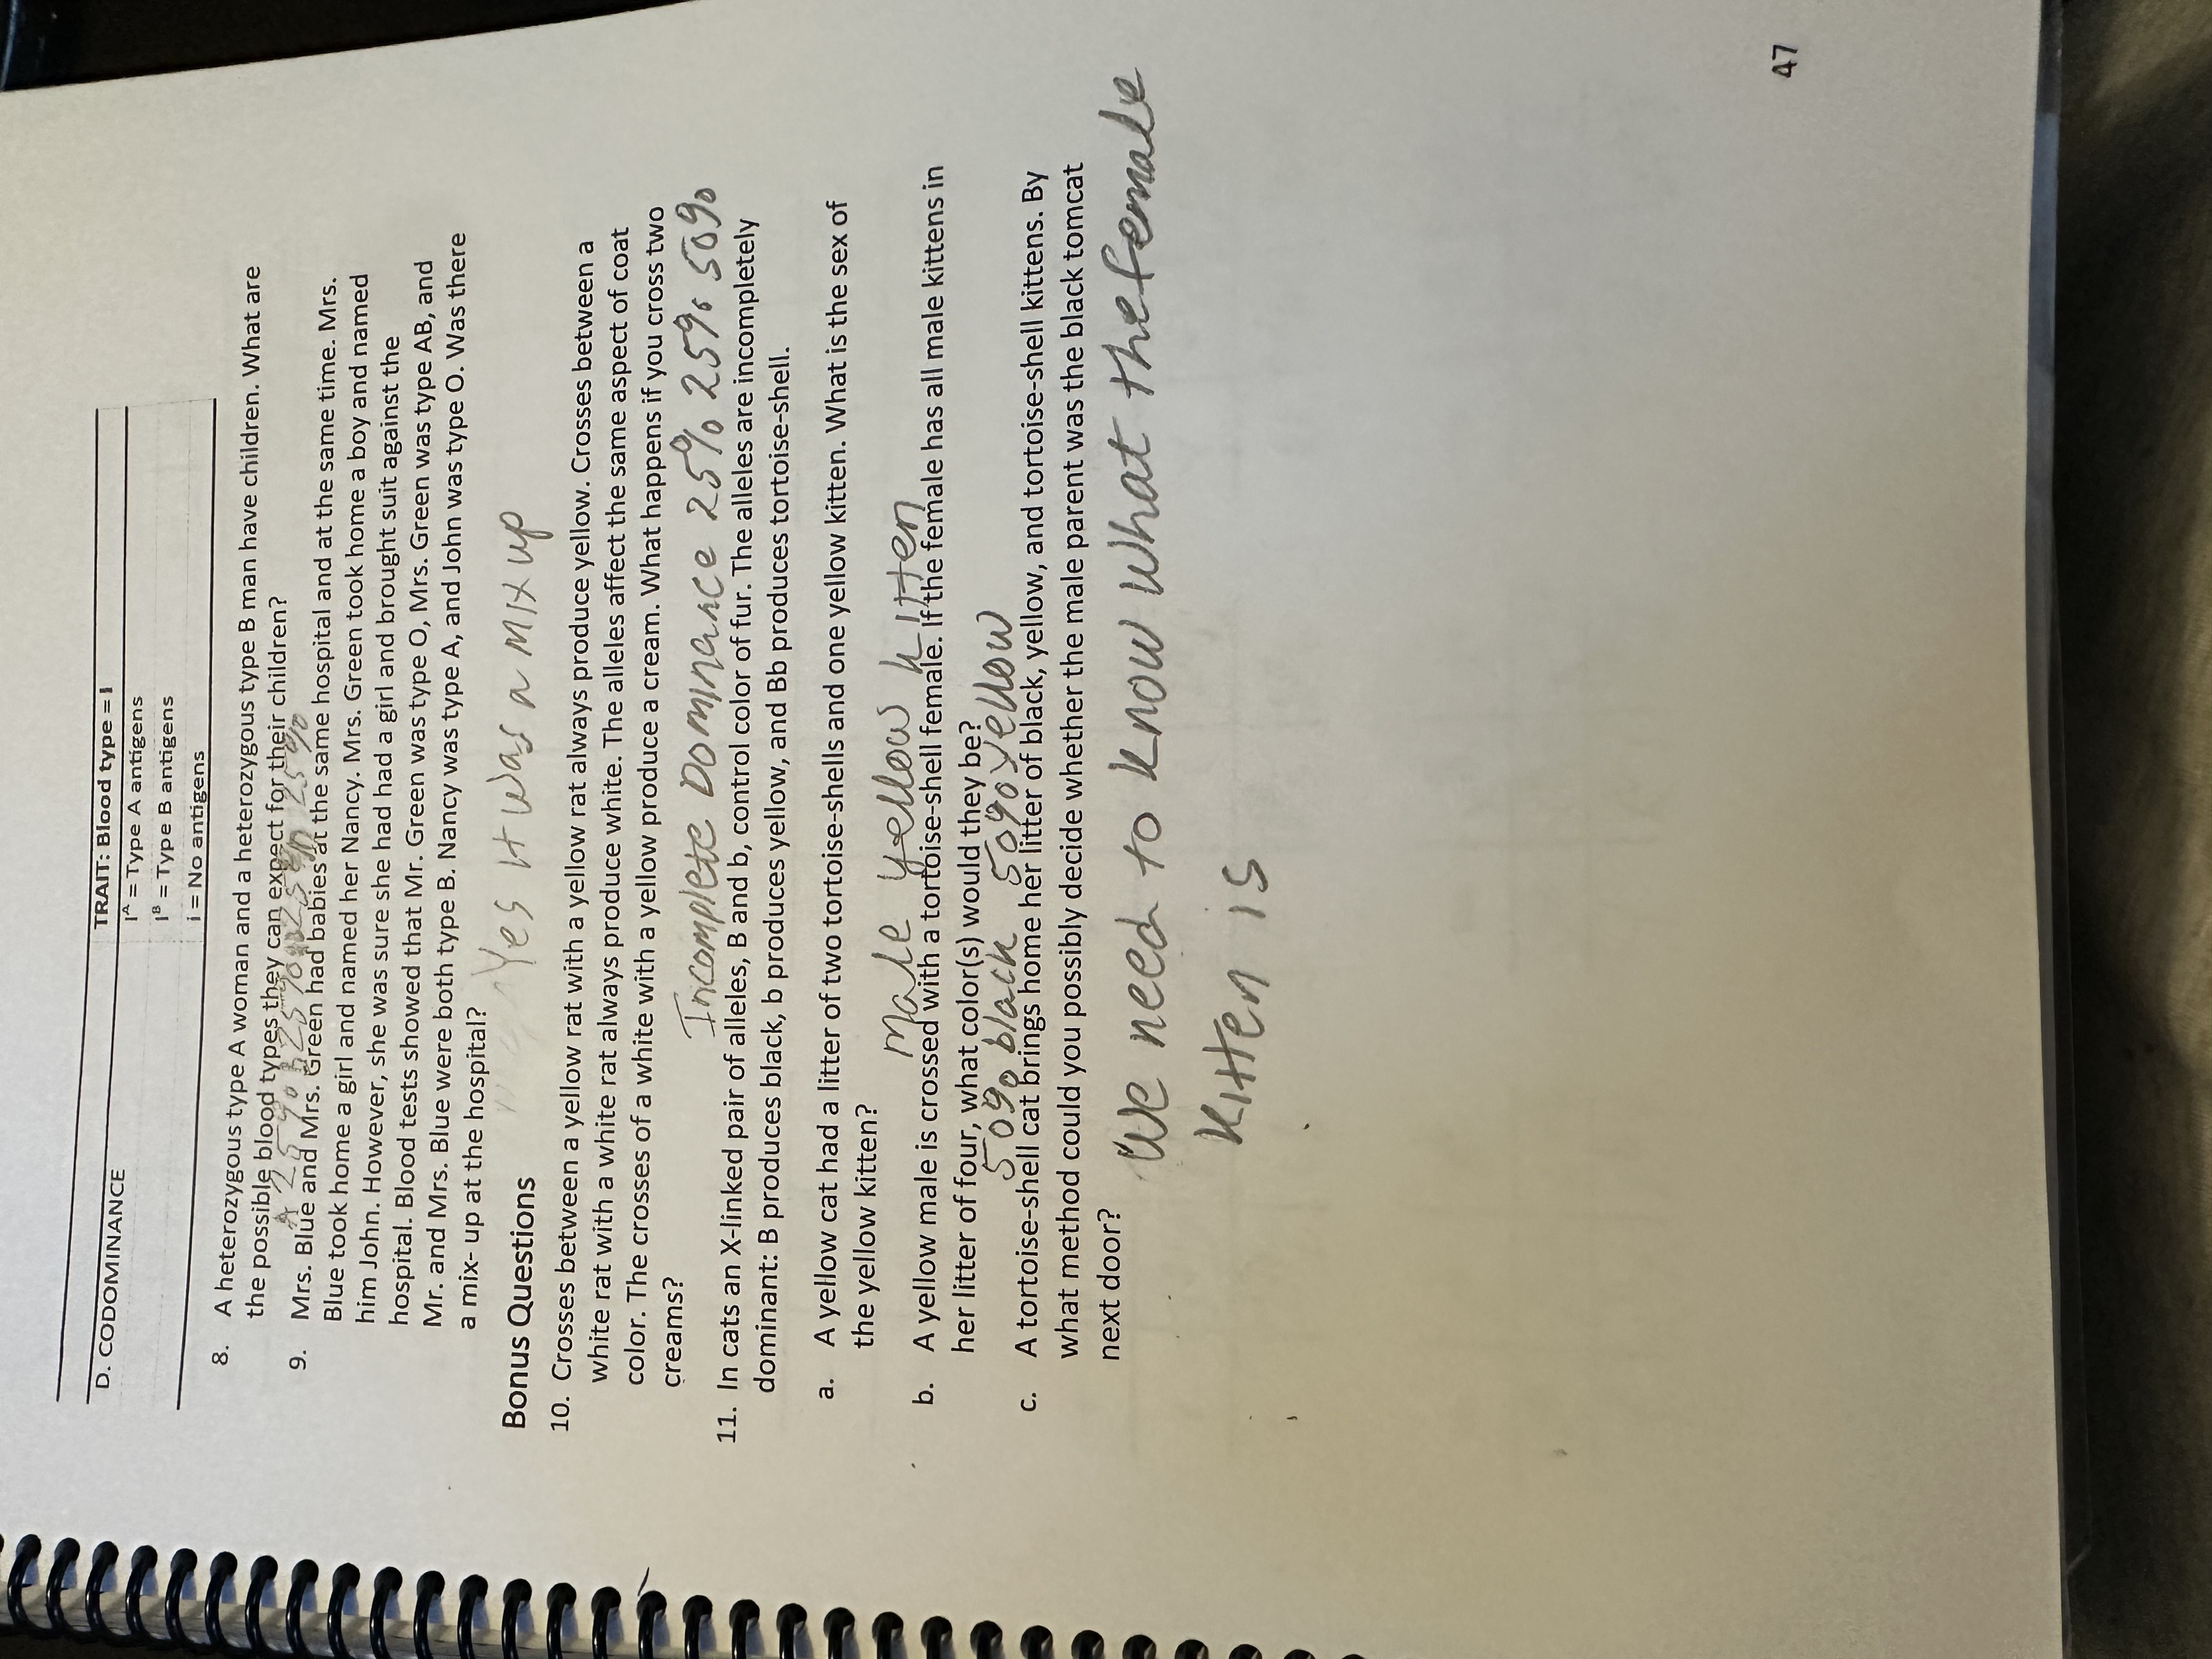 D. CODOMINANCE
TRAIT: Blood type = I
Iᴬ = Type A antigens
Iᴮ = Type B antigens
i = No antigens
8. A heterozygous type A woman and a heterozygous type B man have children. What are
the possible blood types they can expect for their children?
A 25% B 25% 25% 25%
9. Mrs. Blue and Mrs. Green had babies at the same hospital and at the same time. Mrs.
Blue took home a girl and named her Nancy. Mrs. Green took home a boy and named
him John. However, she was sure she had had a girl and brought suit against the
hospital. Blood tests showed that Mr. Green was type O, Mrs. Green was type AB, and
Mr. and Mrs. Blue were both type B. Nancy was type A, and John was type O. Was there
a mix- up at the hospital?
Yes it was a mix up
Bonus Questions
10. Crosses between a yellow rat with a yellow rat always produce yellow. Crosses between a
white rat with a white rat always produce white. The alleles affect the same aspect of coat
color. The crosses of a white with a yellow produce a cream. What happens if you cross two
creams?
Incomplete Dominance 25% 25% 50%
11. In cats an X-linked pair of alleles, B and b, control color of fur. The alleles are incompletely
dominant: B produces black, b produces yellow, and Bb produces tortoise-shell.
a. A yellow cat had a litter of two tortoise-shells and one yellow kitten. What is the sex of
the yellow kitten?
male yellow kitten
b. A yellow male is crossed with a tortoise-shell female. If the female has all male kittens in
her litter of four, what color(s) would they be?
50% black 50% yellow
c. A tortoise-shell cat brings home her litter of black, yellow, and tortoise-shell kittens. By
what method could you possibly decide whether the male parent was the black tomcat
next door?
We need to know what the female
kitten is
47